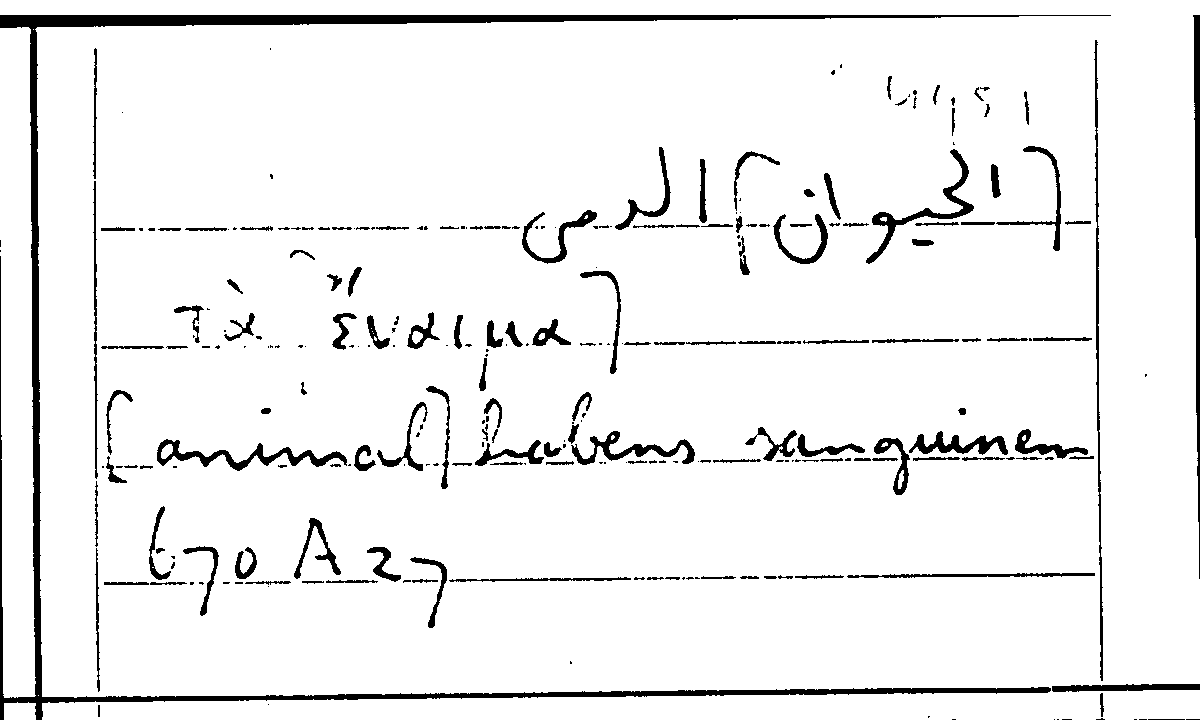 [الحيوان] الدمى
τὰ ἔναιμα]
[animal] habens sanguinem
670 A 27